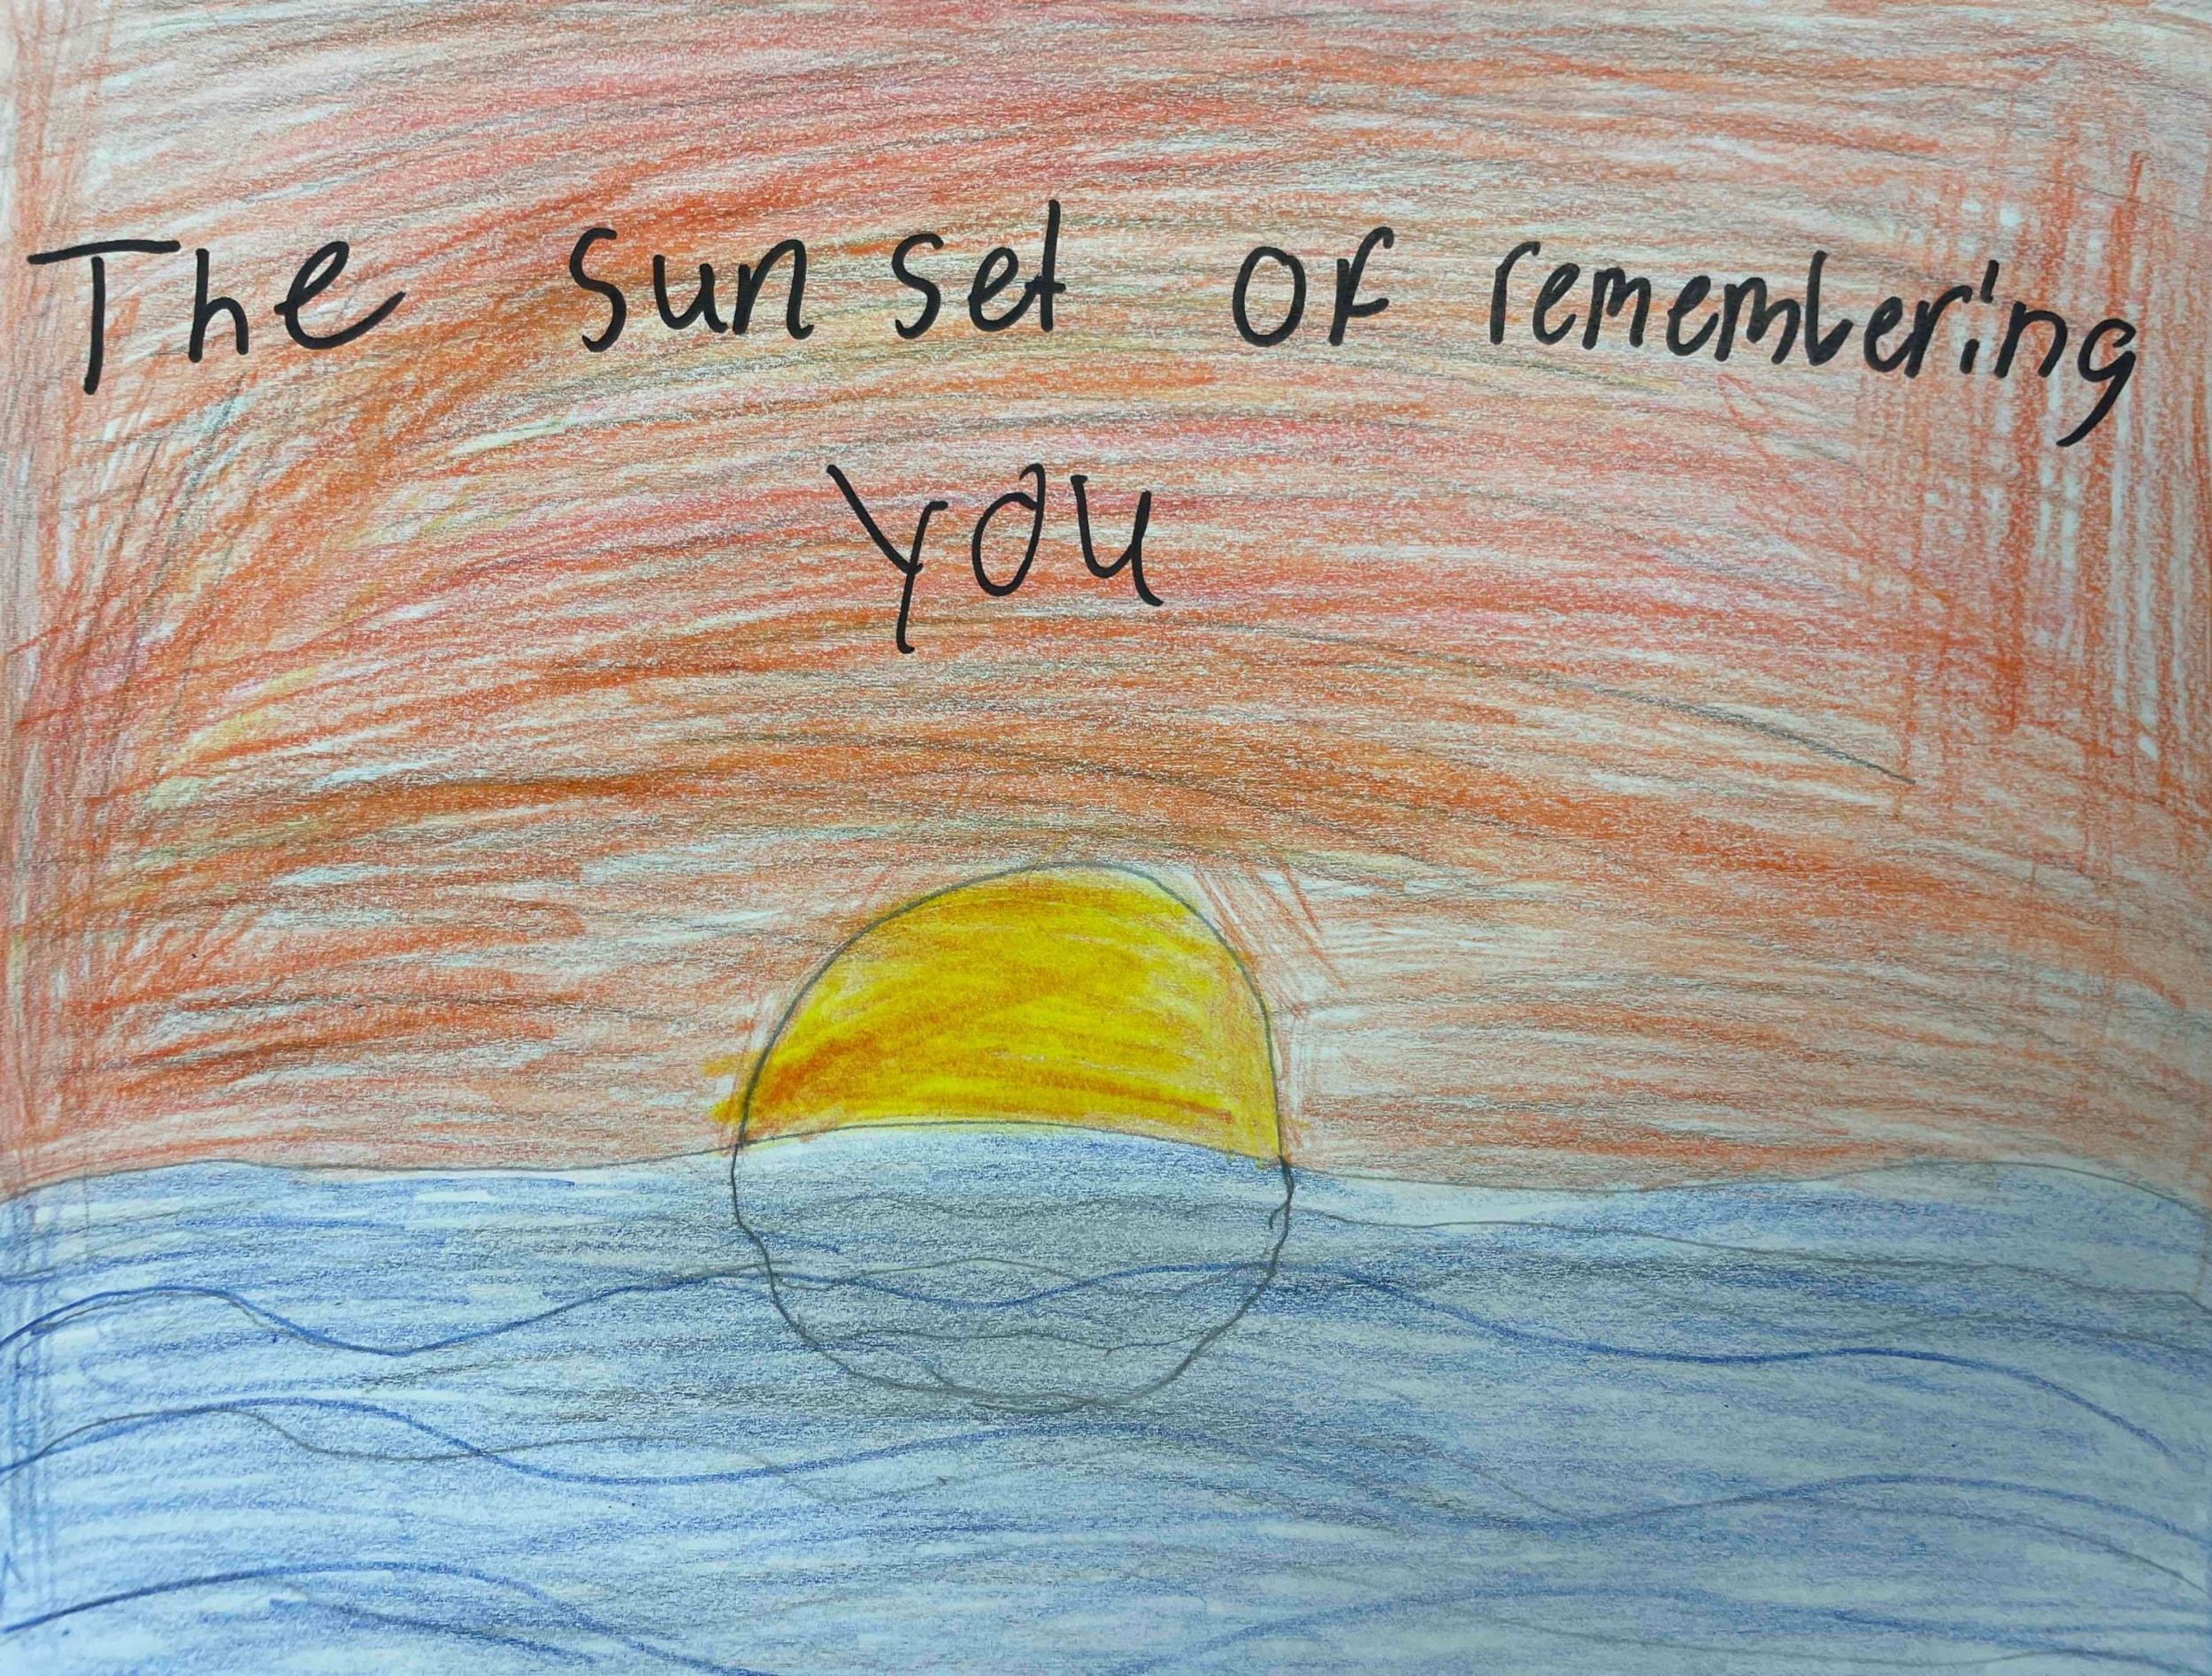 The sun set of remembering
you